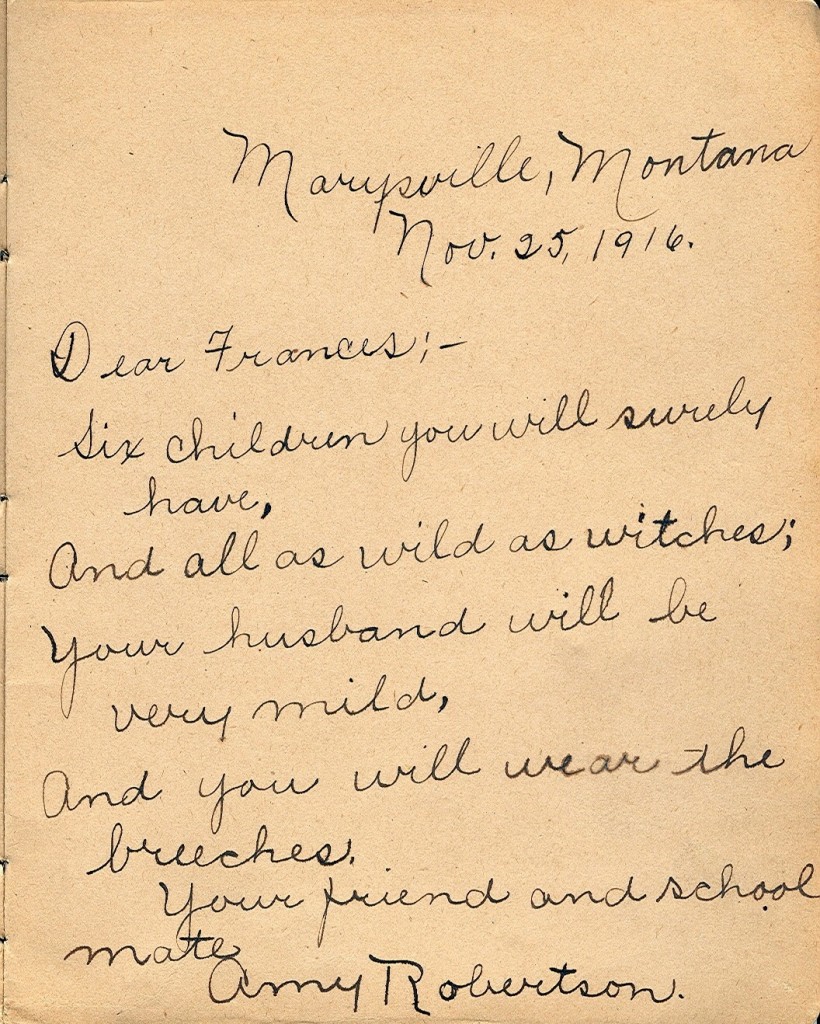 Marysville, Montana
Nov. 25, 1916.
Dear Frances;-
Six children you will surely
have,
And all as wild as witches;
Your husband will be
very mild,
And you will wear the
breeches.
Your friend and school
mate
Amy Robertson.